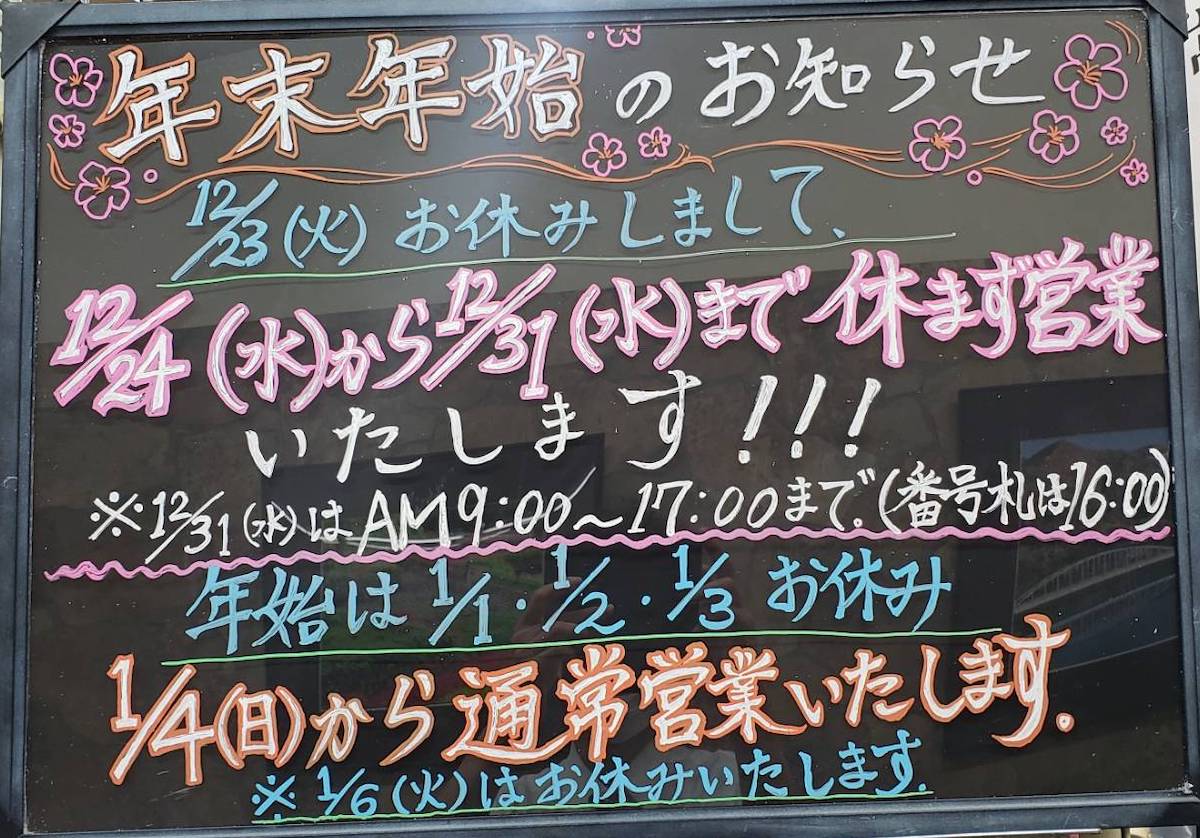 年末年始のお知らせ
12/23(火)お休みしまして、
12/24(水)から12/31(水)まで休まず営業
いたします!!!
※12/31(水)はAM9:00~17:00まで。(番号札は16:00)
年始は1/1・1/2・1/3お休み
1/4(日)から通常営業いたします。
※1/6(火)はお休みいたします。